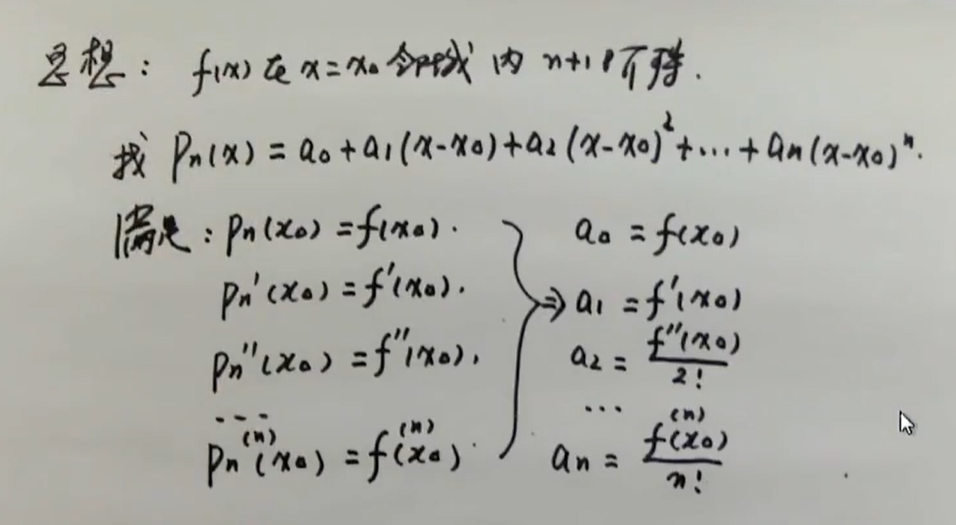 思想: f(x)在x=x₀邻域内n+1阶可导.
找 Pn(x) = a₀ + a₁(x-x₀) + a₂(x-x₀)² + ... + an(x-x₀)ⁿ.
满足: Pn(x₀) = f(x₀). a₀ = f(x₀)
Pn'(x₀) = f'(x₀). ⇒ a₁ = f'(x₀)
Pn''(x₀) = f''(x₀), a₂ = f''(x₀)/2!
... ...
Pn⁽ⁿ⁾(x₀) = f⁽ⁿ⁾(x₀). an = f⁽ⁿ⁾(x₀)/n!